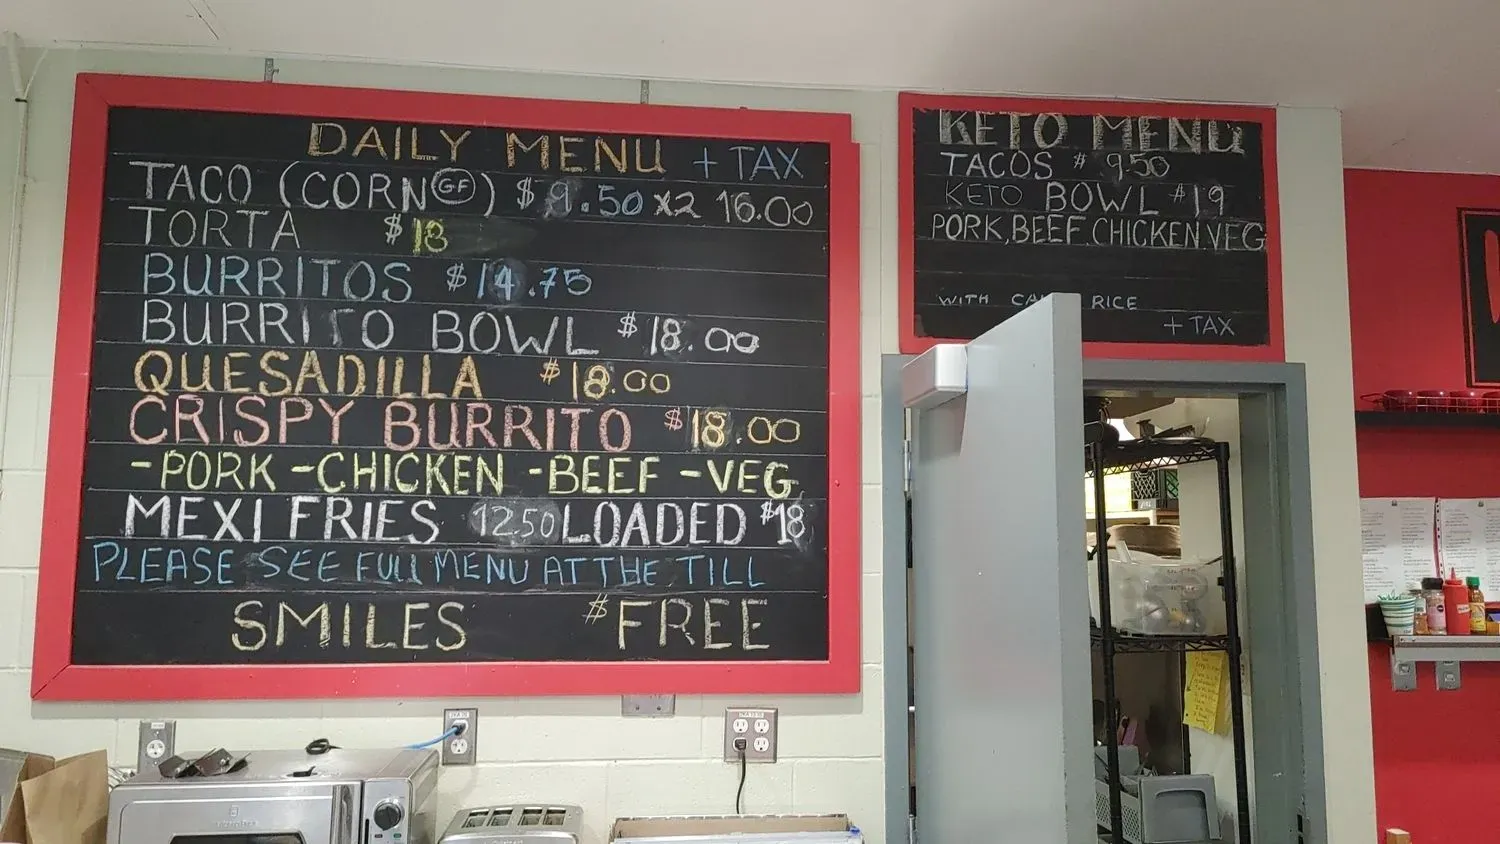 DAILY MENU + TAX
TACO (CORN GF) $9.50 x2 16.00
TORTA $18
BURRITOS $14.75
BURRITO BOWL $18.00
QUESADILLA $18.00
CRISPY BURRITO $18.00
-PORK -CHICKEN -BEEF -VEG
MEXI FRIES 12.50 LOADED $18
PLEASE SEE FULL MENU AT THE TILL
SMILES $FREE
KETO MENU
TACOS $9.50
KETO BOWL $19
PORK, BEEF, CHICKEN, VEG
WITH RICE
+ TAX